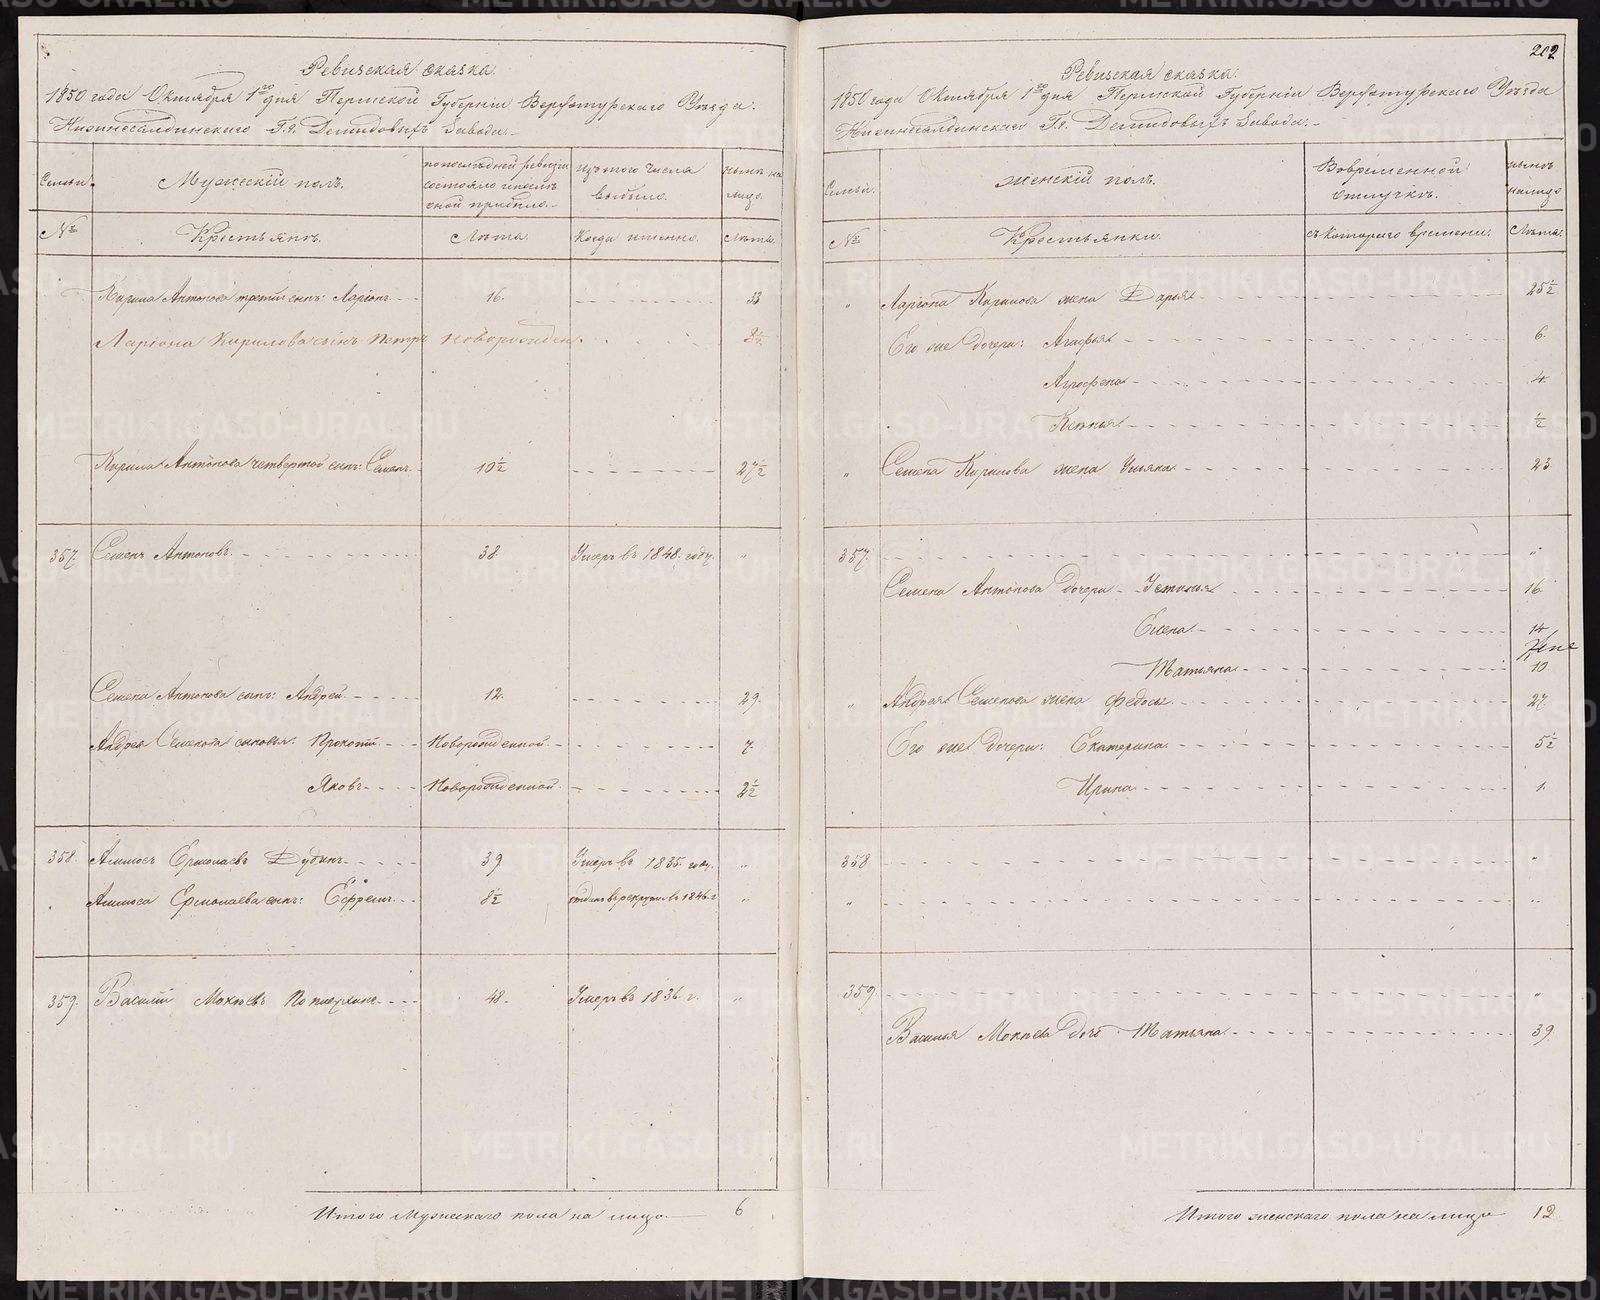 Ревизская сказка.
1850 года Октября 1го дня Пермской Губернiи Верхотурскаго Уѣзда.
Нижнесалдинскаго Г.г. Демидовыхъ Завода.
Семьи.
Мужескiй полъ.
по послѣдней ревизiи состояло и послѣ оной прибыло.
изъ того числа выбыло.
нынѣ на лицо.
№
Крестьянъ.
Лѣта.
Когда именно.
Лѣта.
Кирила Антонова третiй сынъ: Ларiонъ 16. 33
Ларiона Кирилова сынъ Петръ новорожден. 8½
Кирила Антонова четвертой сынъ: Семенъ 10½ 27½
357. Семенъ Антоновъ 38. Умеръ въ 1848. году. "
Семена Антонова сынъ: Андрей 12. 29.
Андрея Семенова сыновья: Прокопiй Новорожденной 7.
Яковъ Новорожденной 2½
358. Аммосъ Ермолаевъ Дудинъ 39 Умеръ въ 1835. году. "
Аммоса Ермолаева сынъ: Ефремъ 8½ отданъ въ рекруты въ 1846. г "
359. Василiй Мокѣевъ 48. Умеръ въ 1836. г. "
Итого Мужескаго пола на лицо 6
202
Ревизская сказка.
1850 года Октября 1го дня Пермской Губернiи Верхотурскаго Уѣзда
Нижнесалдинскаго Г.г. Демидовыхъ Завода.
Семьи.
женскiй полъ.
Во временной отлучкѣ.
нынѣ налицо
№
Крестьянки.
съ котораго времени.
Лѣта.
" Ларiона Кирилова жена Дарья 25½
Его же дочери: Агафья 6.
Агрофена 4.
Ксѣнья ½
" Семена Кирилова жена Ульяна 23.
357. "
Семена Антонова дочери Устинья 16.
Елена 14
Татьяна 10
" Андрея Семенова жена Федосья 27.
Его же дочери: Екатерина 5½
Ирина 1.
358 "
" "
359 "
Василья Мокѣева дочь Татьяна 39.
Итого женскаго пола на лицо 12
METRIKI.GASO-URAL.RU